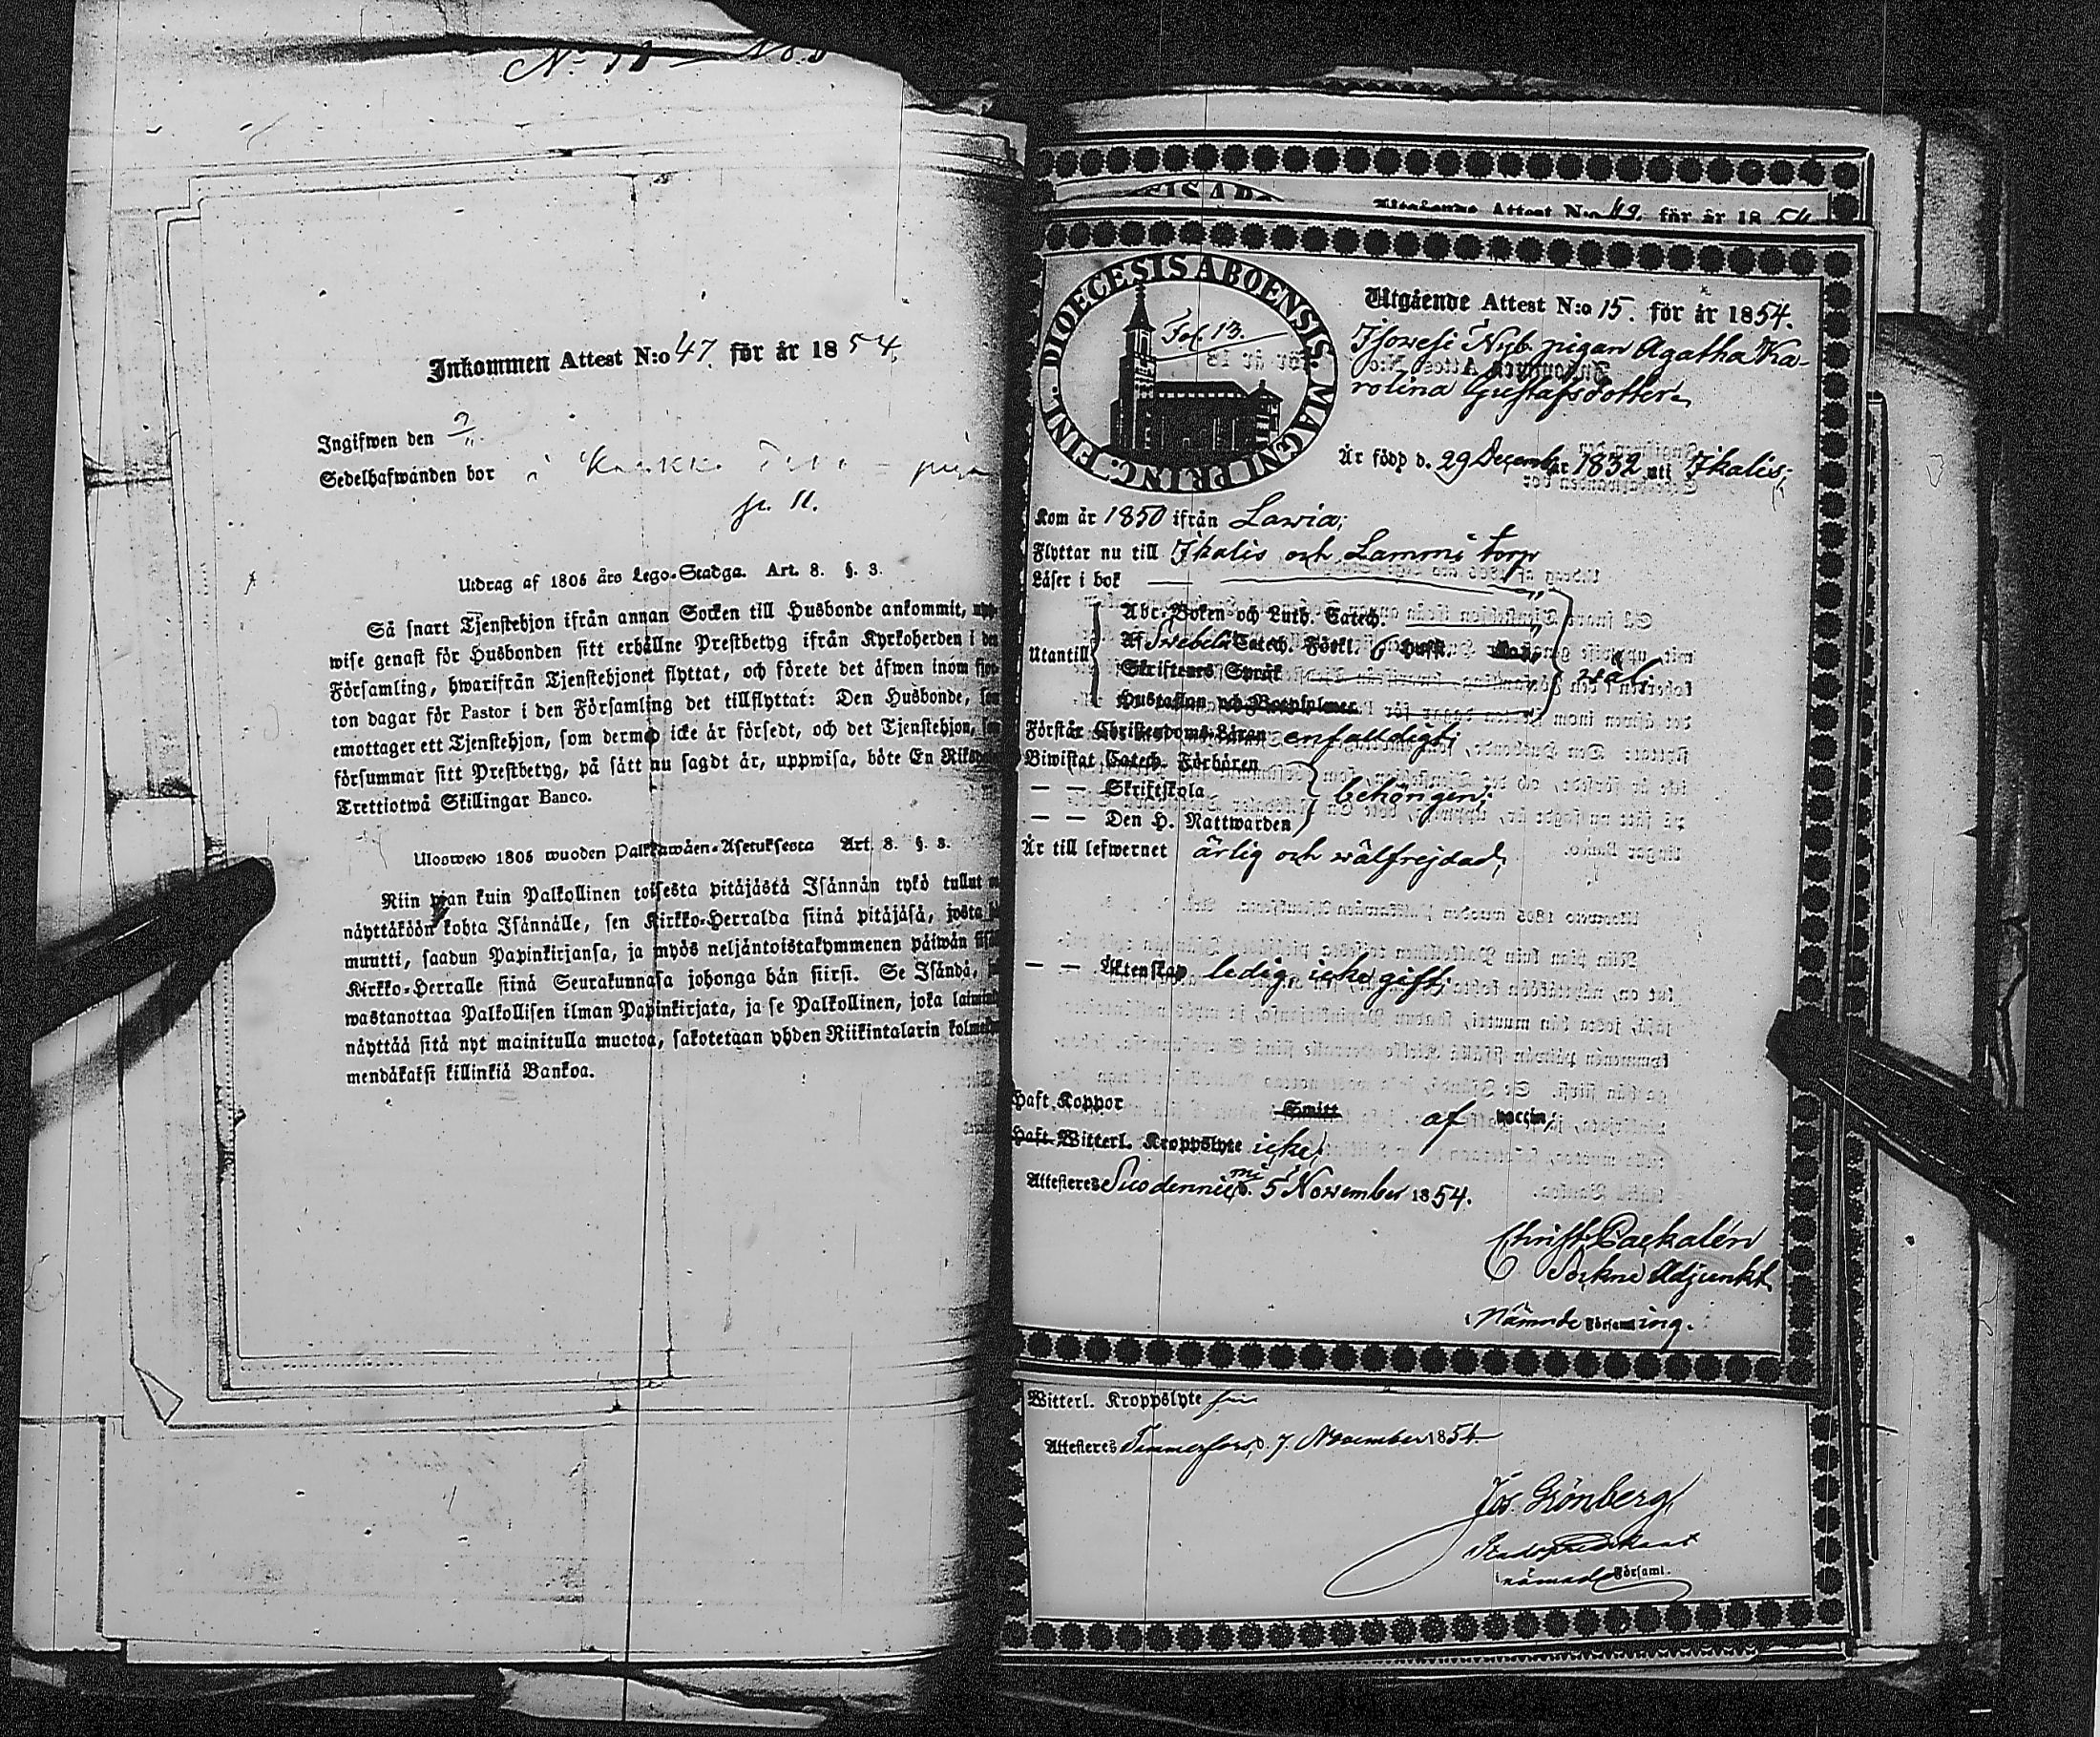 Inkommen Attest N:o 47. för år 1854.
Ingifwen den 7/11.
Sedelhafwanden bor i
Utdrag af 1805 års Lego-Stadga. Art. 8. §. 3.
Så snart Tjenstehjon ifrån annan Socken till Husbonde ankommit, upp-
wise genast för Husbonden sitt erhållne Prestbetyg ifrån Kyrkoherden i den
Församling, hwarifrån Tjenstehjonet flyttat, och förete det äfwen inom fjor-
ton dagar för Pastor i den Församling det tillflyttat: Den Husbonde, som
emottager ett Tjenstehjon, som dermed icke är försedt, och det Tjenstehjon, som
försummar sitt Prestbetyg, på sätt nu sagdt är, uppwisa, böte En Riksd.
Trettiotwå Skillingar Banco.
Ulosweto 1805 wuoden Palkkawäen-Asetuksesta Art. 8. §. 3.
Niin pian kuin Palkollinen toisesta pitäjästä Isännän tykö tullut
näyttäköön kohta Isännälle, sen Kirkko-Herralda siinä pitäjäsä, josta
muutti, saadun Papinkirjansa, ja myös neljäntoistakymmenen päiwän
Kirkko-Herralle siinä Seurakunnasa johonga hän siirsi. Se Isändä,
wastanottaa Palkollisen ilman Papinkirjata, ja se Palkollinen, joka
näyttää sitä nyt mainitulla muotoa, sakotetaan yhden Riikintalarin
mendäkaksi killinkiä Bankoa.
Utgående Attest N:o 49. för år 1854
DIOECESIS ABOENSIS. MAGNI PRINC. FINL.
Fol. 13.
Utgående Attest N:o 15. för år 1854.
Nyb. pigan Agatha Ka-
rolina Gustafsdotter
Är född d. 29 December 1832 uti Ikalis;
Kom år 1850 ifrån Lawia;
Flyttar nu till Ikalis och Lammi torp
Läser i bok
Utantill
Abc-Boken och Luth. Catech.
Af Swebelii Catech. Förkl. 6 Hufst.
Skriftenes Språk
Hustaflan och Botpsalmer.
wäl;
Förstår Christendoms-Läran enfaldigt;
Biwistat Catech. Förhören
— — Skriftskola
— — Den H. Nattwarden
behörigen;
Är till lefwernet ärlig och wälfrejdad,
— — Äktenskap ledig, icke gift;
Haft Koppor Smitt af vaccin;
Haft Witterl. Kroppslyte icke;
Attesteres Suodenniemi d. 5 November 1854.
Christ. Packalén
Sockne Adjunkt
i Nämnde Församling.
Witterl. Kroppslyte fri
Attesteres Tammerfors, d. 7. November 1854.
Jos. Grönberg
Stadspredikant
i nämnde Församl.